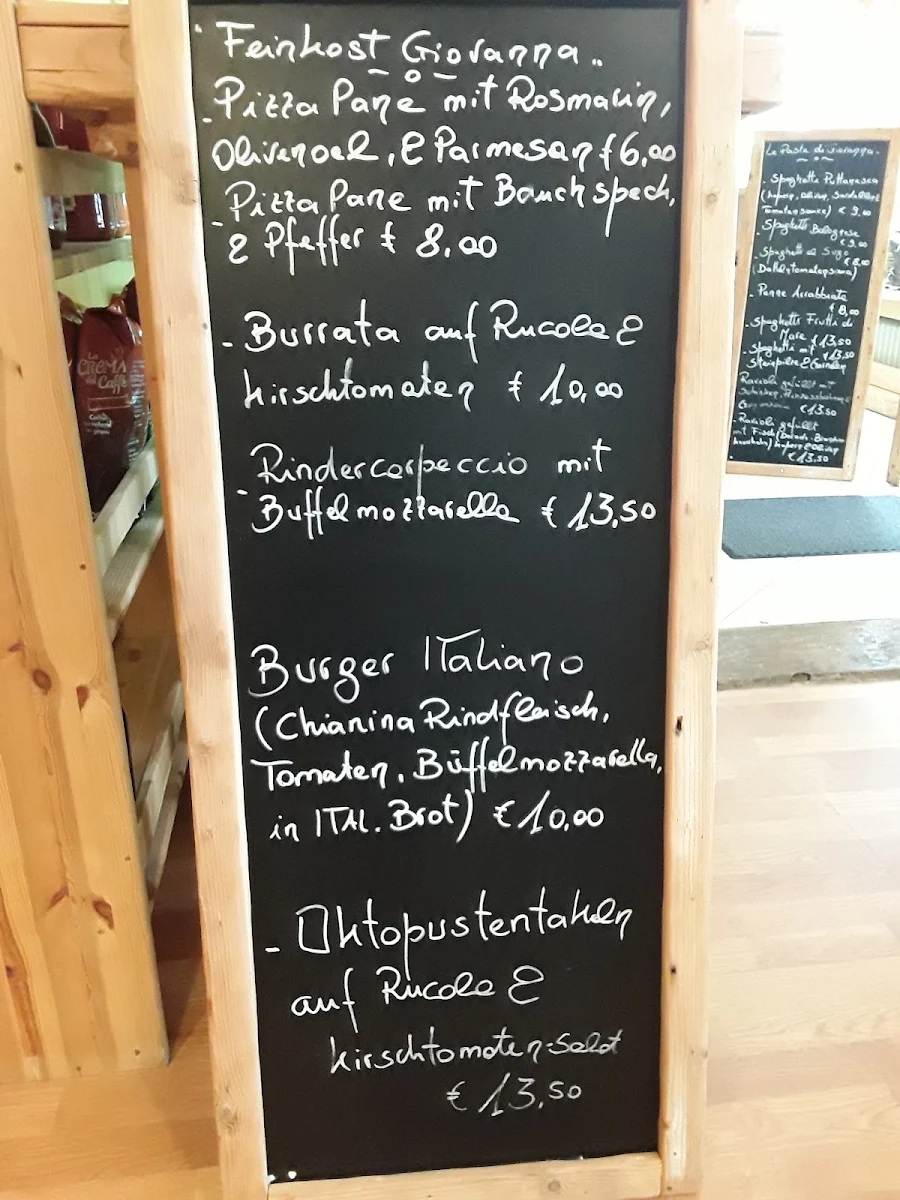 Feinkost Giovanna..
- o -
- Pizza Pane mit Rosmarin,
Olivenoel, & Parmesan € 6,00
- Pizza Pane mit Bauchspeck,
& Pfeffer € 8,00
- Burrata auf Rucola &
Kirschtomaten € 10,00
- Rindercarpaccio mit
Büffelmozzarella € 13,50
Burger ITaliano
(Chianina Rindfleisch,
Tomaten, Büffelmozzarella,
in ITAL. Brot) € 10,00
- Oktopustentakeln
auf Rucola &
Kirschtomaten-Salat
€ 13,50
La Pasta di Giovanna.
- o -
- Spaghetti Puttanesca
(Kapern, Oliven, Sardellen &
Tomatensauce) € 9,00
- Spaghetti Bolognese
€ 9,00
- Spaghetti al Sugo
€ 8,00
(Datteltomaten
- Penne Arrabbiata
€ 8,00
- Spaghetti Frutti di
Mare € 13,50
- Spaghetti mit € 13,50
Steinpilze & Garnelen
Ravioli gefüllt mit
€ 13,50
- Ravioli gefüllt
mit Fisch
€ 13,50
La
CREMA
del Caffè